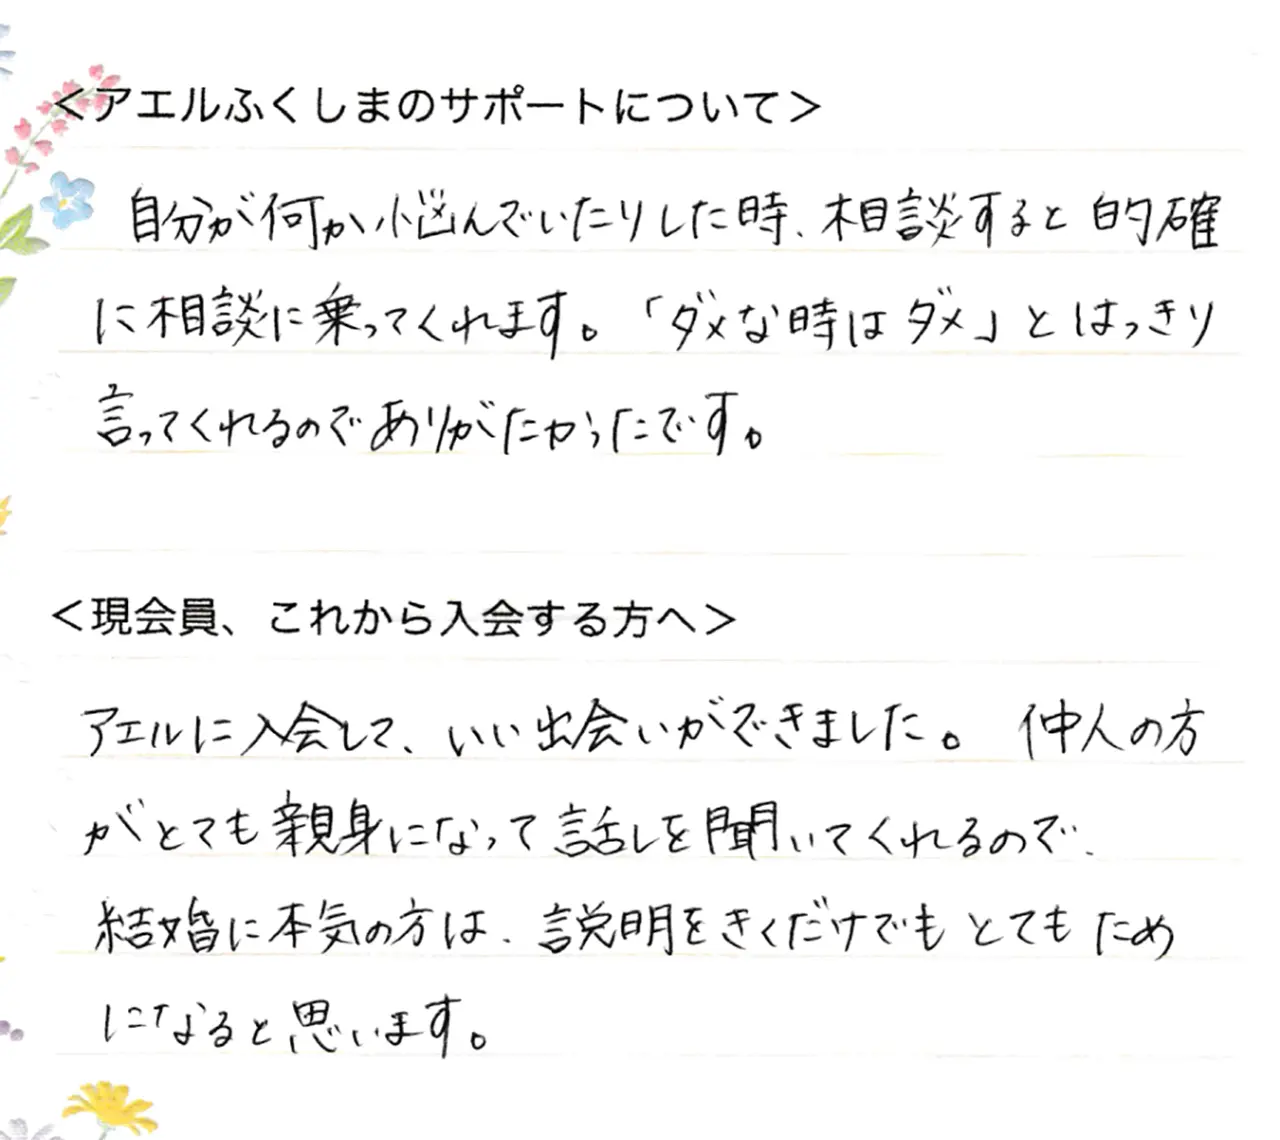 ＜アエルふくしまのサポートについて＞
自分が何か悩んでいたりした時、相談すると的確
に相談に乗ってくれます。「ダメな時はダメ」とはっきり
言ってくれるのでありがたかったです。
＜現会員、これから入会する方へ＞
アエルに入会して、いい出会いができました。 仲人の方
がとても親身になって話しを聞いてくれるので、
結婚に本気の方は、説明をきくだけでもとてもため
になると思います。